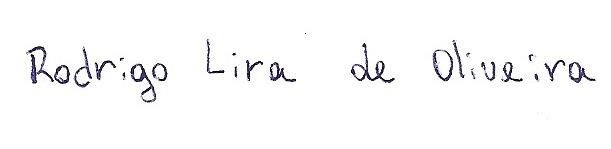 Rodrigo Lira de Oliveira